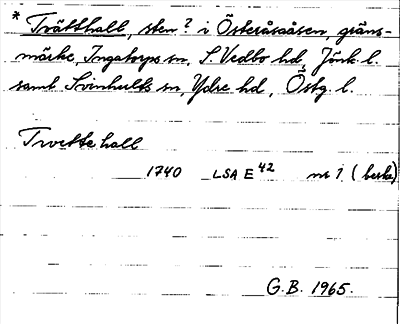 * Trätthall, sten? i Österåsaåsen, gräns-
märke, Ingatorps sn, S. Vedbo hd, Jönk. l.
samt Svinhults sn, Ydre hd, Östg. l.
Trvette hall
1740 LSA E 42 nr 1 (beskr)
G.B. 1965.